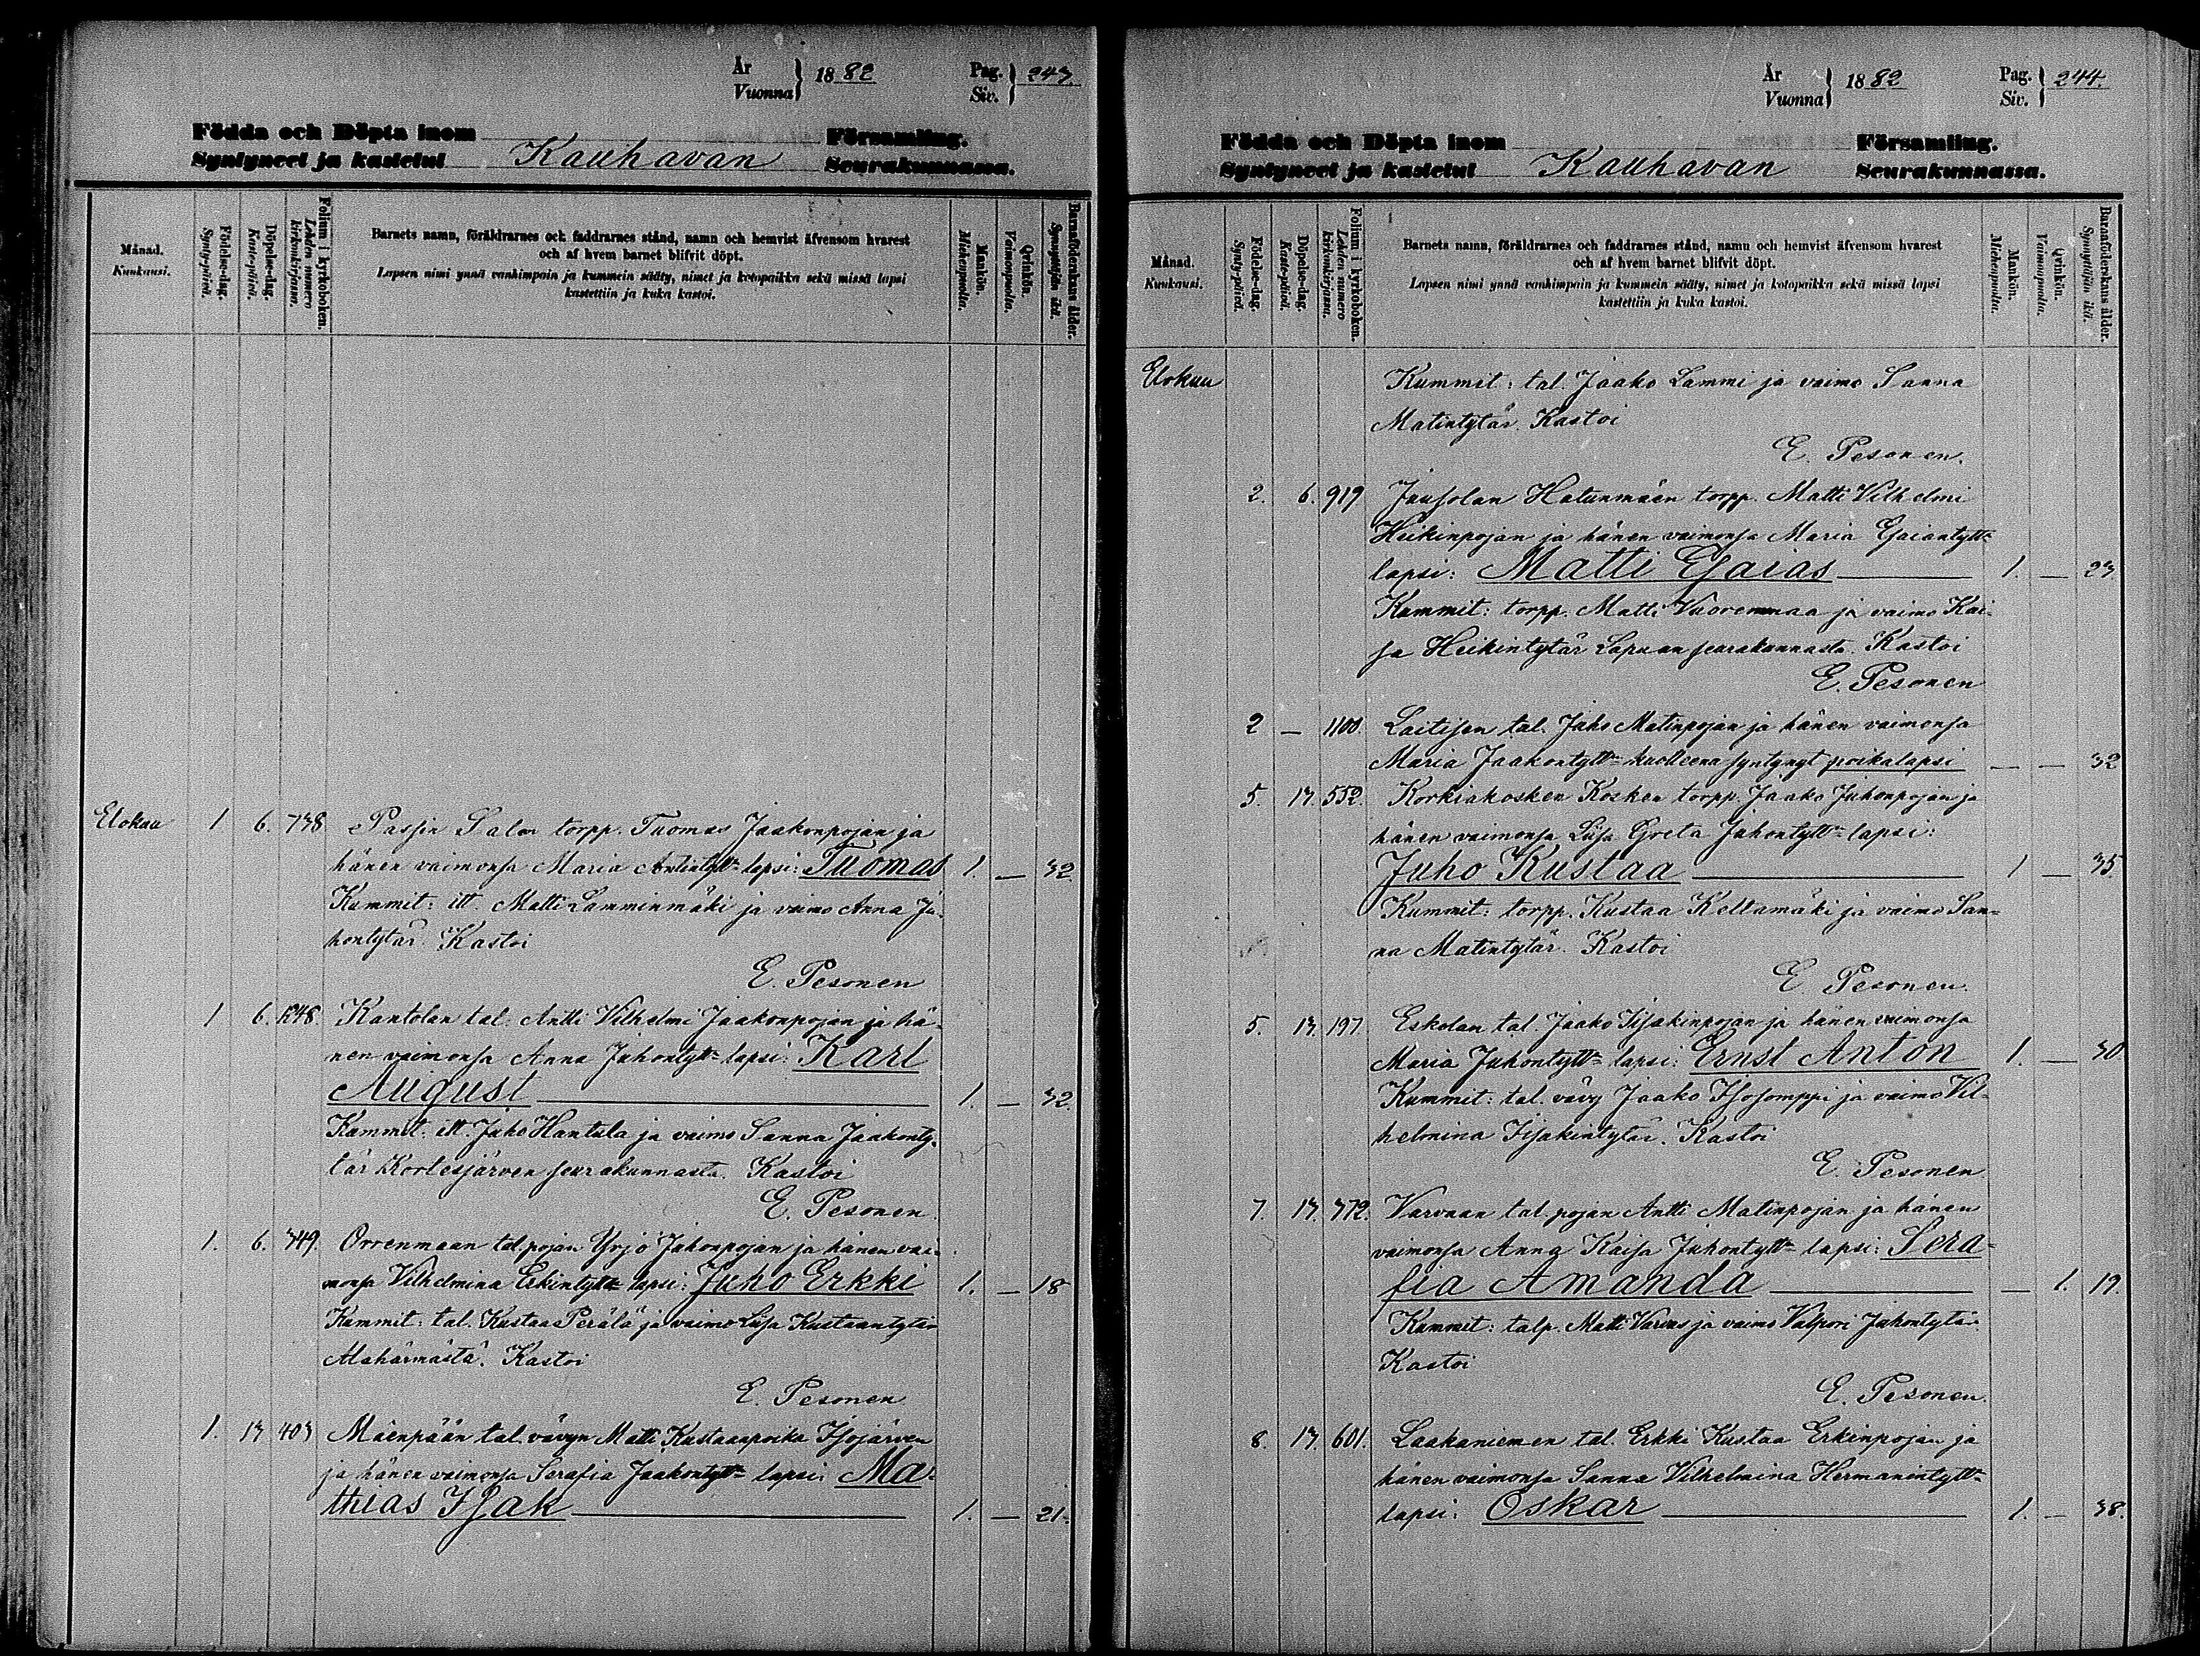 År
Vuonna } 1882
Pag.
Siv. } 243.
Födda och Döpta inom Församling.
Syntyneet ja kastetut Kauhavan Seurakunnassa.
Månad.
Kuukausi.
Födelse-dag.
Synty-päivä.
Döpelse-dag.
Kaste-päivä.
Folium i kyrkoboken.
Lehden numero
kirkonkirjassa.
Barnets namn, föräldrarnes och faddrarnes stånd, namn och hemvist äfvensom hvarest
och af hvem barnet blifvit döpt.
Lapsen nimi ynnä vanhimpain ja kummein sääty, nimet ja kotopaikka sekä missä lapsi
kastettiin ja kuka kastoi.
Mankön.
Miehenpuolta.
Qvinkön.
Vaimonpuolta.
Barnaföderskans ålder.
Synnyttäjän ikä.
Elokuu 1 6. 738 Passin Salon torpp. Tuomas Jaakonpojan ja
hänen vaimonsa Maria Antintytt= lapsi: Tuomas 1. — 32
Kummit: itt. Matti Lamminmäki ja vaimo Anna Ju-
hontytär. Kastoi
E. Pesonen
1 6. 1248. Kantolan tal. Antti Vilhelmi Jaakonpojan ja hä-
nen vaimonsa Anna Juhontytt= lapsi: Karl
August 1. — 32.
Kummit: itt. Juho Hantula ja vaimo Sanna Jaakonty-
tär Kortesjärven seurakunnasta. Kastoi
E. Pesonen.
1. 6. 349. Orrenmaan tal. pojan Yrjö Juhonpojan ja hänen vai-
monsa Vilhelmina Erkintytt= lapsi: Juho Erkki 1. — 18
Kummit: tal. Kustaa Perälä ja vaimo Liisa Kustaantytär
Alahärmästä. Kastoi
E. Pesonen
1. 13 403 Mäenpään tal. vävyn Matti Kustaanpoika Isojärven
ja hänen vaimonsa Serafia Jaakontytt= lapsi: Ma-
thias Isak 1. — 21.
År
Vuonna } 1882
Pag.
Siv. } 244.
Födda och Döpta inom Församling.
Syntyneet ja kastetut Kauhavan Seurakunnassa.
Månad.
Kuukausi.
Födelse-dag.
Synty-päivä.
Döpelse-dag.
Kaste-päivä.
Folium i kyrkoboken.
Lehden numero
kirkonkirjassa.
Barnets namn, föräldrarnes och faddrarnes stånd, namn och hemvist äfvensom hvarest
och af hvem barnet blifvit döpt.
Lapsen nimi ynnä vanhimpain ja kummein sääty, nimet ja kotopaikka sekä missä lapsi
kastettiin ja kuka kastoi.
Mankön.
Miehenpuolta.
Qvinkön.
Vaimonpuolta.
Barnaföderskans ålder.
Synnyttäjän ikä.
Elokuu Kummit: tal. Jaako Lammi ja vaimo Sanna
Matintytär. Kastoi
E. Pesonen.
2. 6. 919 Jussolan Hatunmäen torpp. Matti Vilhelmi
Heikinpojan ja hänen vaimonsa Maria Esaiantytt=
lapsi: Matti Esaias 1. — 23
Kummit: torpp. Matti Vuorenmaa ja vaimo Kai-
sa Heikintytär Lapuan seurakunnasta. Kastoi
E. Pesonen
2 — 1100. Laitisen tal. Juho Matinpojan ja hänen vaimonsa
Maria Jaakontytt= kuolleena syntynyt poikalapsi — — 32
5. 13. 552. Korkiakosken Kosken torpp. Jaako Juhonpojan ja
hänen vaimonsa Liisa Greta Juhontytt= lapsi:
Juho Kustaa 1 — 35
Kummit: torpp. Kustaa Keltamäki ja vaimo San=
na Matintytär. Kastoi
E. Pesonen.
5. 13. 197. Eskolan tal. Jaako Iisakinpojan ja hänen vaimonsa
Maria Juhontytt= lapsi: Ernst Anton 1. — 30
Kummit: tal. vävy Jaako Isosomppi ja vaimo Vil-
helmina Iisakintytär. Kastoi
E. Pesonen.
7. 13. 372. Varvaan tal. pojan Antti Matinpojan ja hänen
vaimonsa Anna Kaisa Juhontytt= lapsi: Sera-
fia Amanda — 1. 19.
Kummit: talp. Matti Varvas ja vaimo Valpori Juhontytär.
Kastoi
E. Pesonen.
8. 13. 601. Laakaniemen tal. Erkki Kustaa Erkinpojan ja
hänen vaimonsa Sanna Vilhelmina Hermanintytt=
lapsi: Oskar 1. — 38.